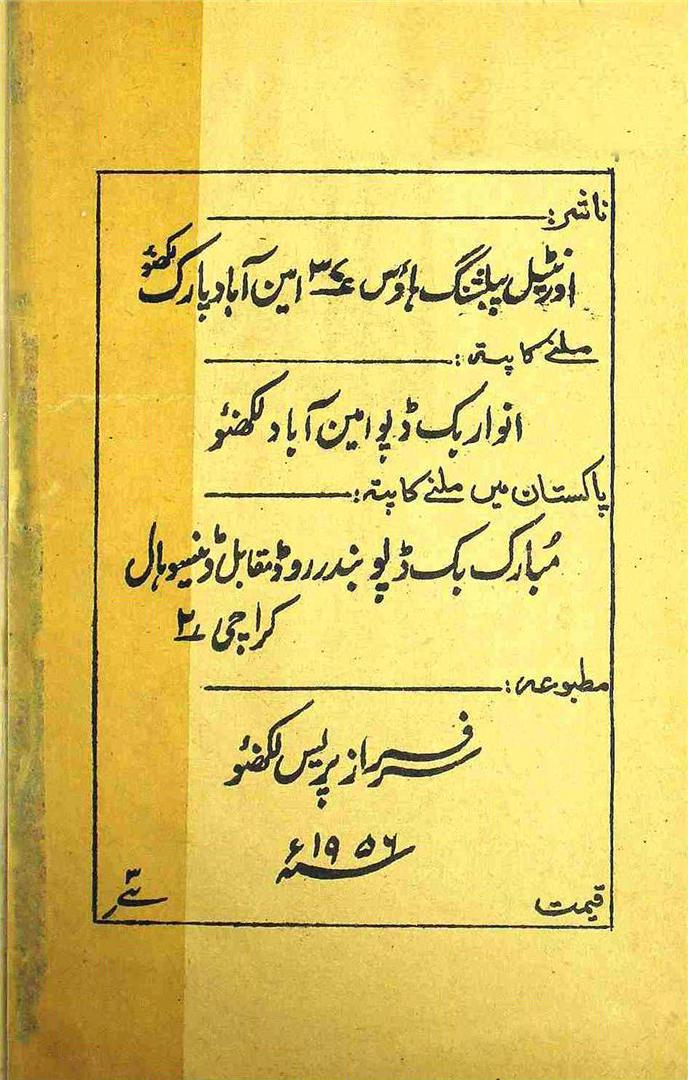 ناشر:
اورنٹیل پبلشنگ ہاؤس امین آباد پارک لکھنؤ
ملنے کا پتہ:
انوار بک ڈپو امین آباد لکھنؤ
پاکستان میں ملنے کا پتہ:
مُبارک بک ڈپو بندر روڈ مقابل ڈینسو ہال
کراچی ۲
مطبوعہ:
سرفراز پریس لکھنؤ
۱۹۵۶ء
قیمت